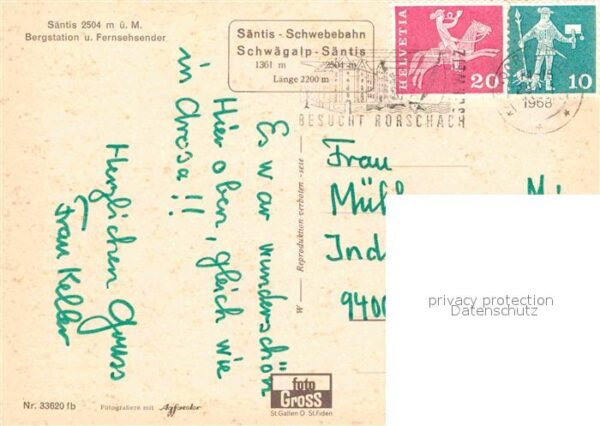 Säntis 2504 m ü. M.
Bergstation u. Fernsehsender
Säntis - Schwebebahn
Schwägalp - Säntis
1361 m 2504 m
Länge 2200 m
HELVETIA
20
10
1968
BESUCHT RORSCHACH
Es war wunderschön
Hier oben, gleich wie
in Arosa!!
Herzlichen Gruss
Frau Keller
Frau
Müh
Ind
9400
W — Reproduktion verboten
privacy protection
Datenschutz
foto
Gross
St.Gallen O St.Fiden
Nr. 33620 fb
Fotografiere mit Agfacolor